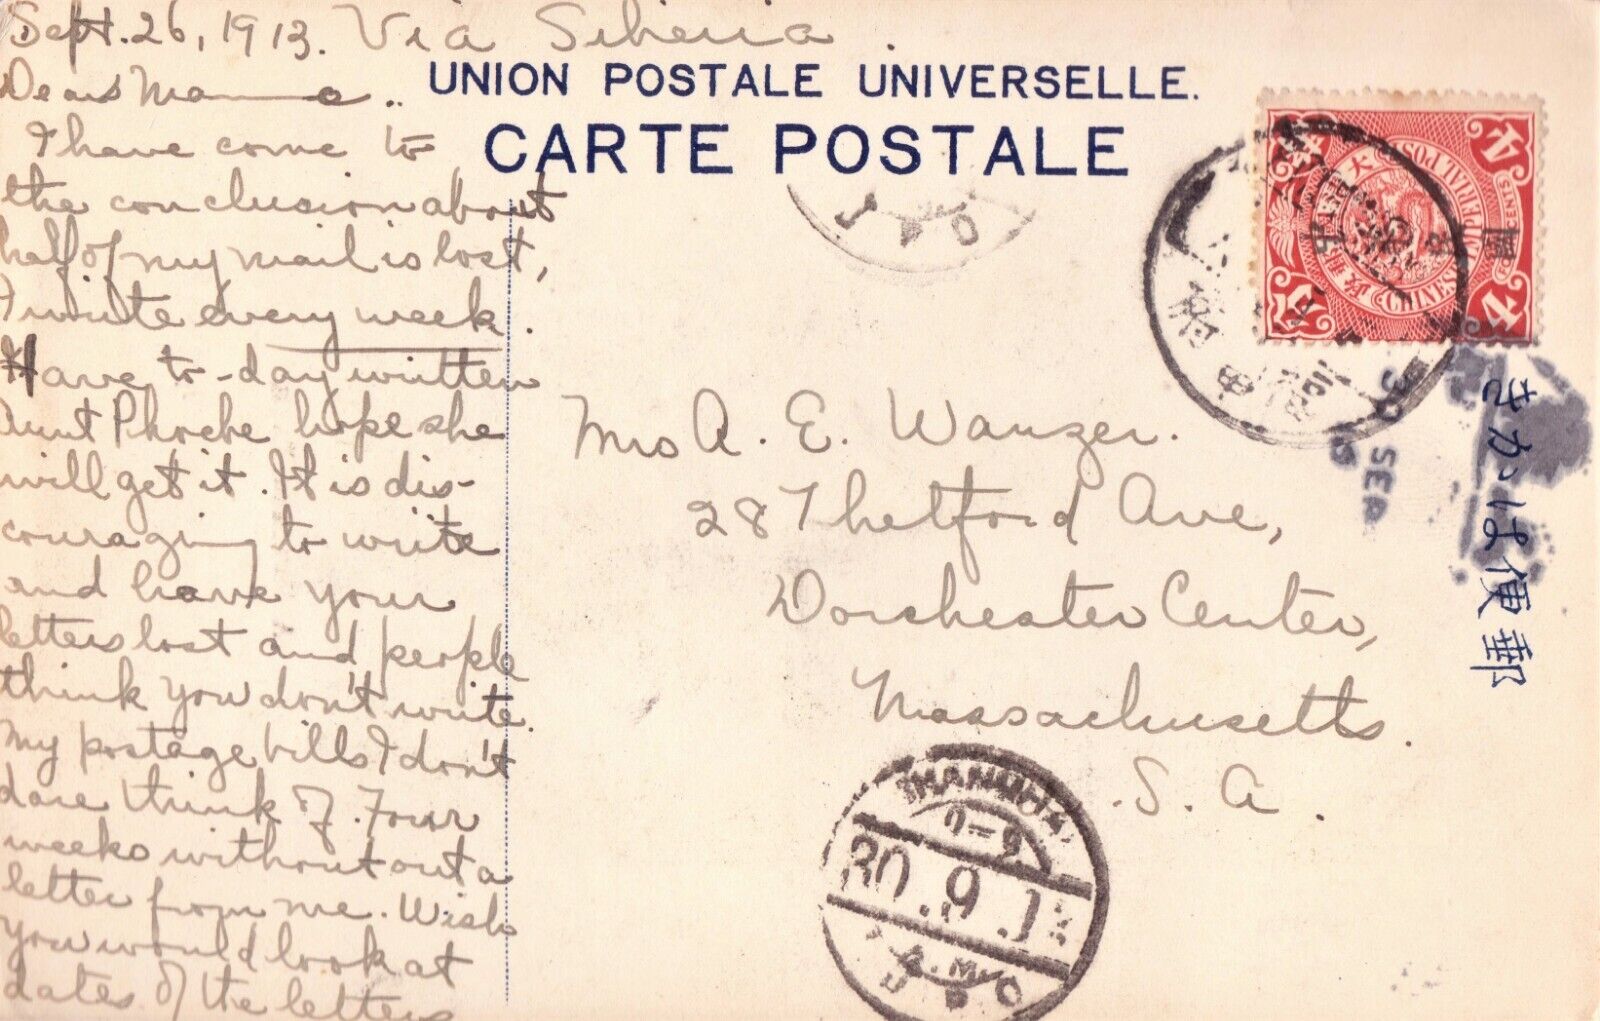 Sept. 26, 1913. Via Siberia.
Dear Mama..
I have come to
the conclusion about
half of my mail is lost,
I write every week.
Have to-day written
Aunt Phoebe hope she
will get it. It is dis-
couraging to write
and have your
letters lost and people
think you don't write.
My postage bills I don't
dare think of. Four
weeks without out a
letter from me. Wish
you would look at
dates of the letters
UNION POSTALE UNIVERSELLE.
CARTE POSTALE
Mrs A. E. Wanzer.
28 Thetford Ave,
Dorchester Center,
Massachusetts.
.S. A.
CHINESE IMPERIAL POST
4
CENTS
4
30 SEP.
SHANGHAI
9-9
30.9.13
I.J.P.O
きかは便郵